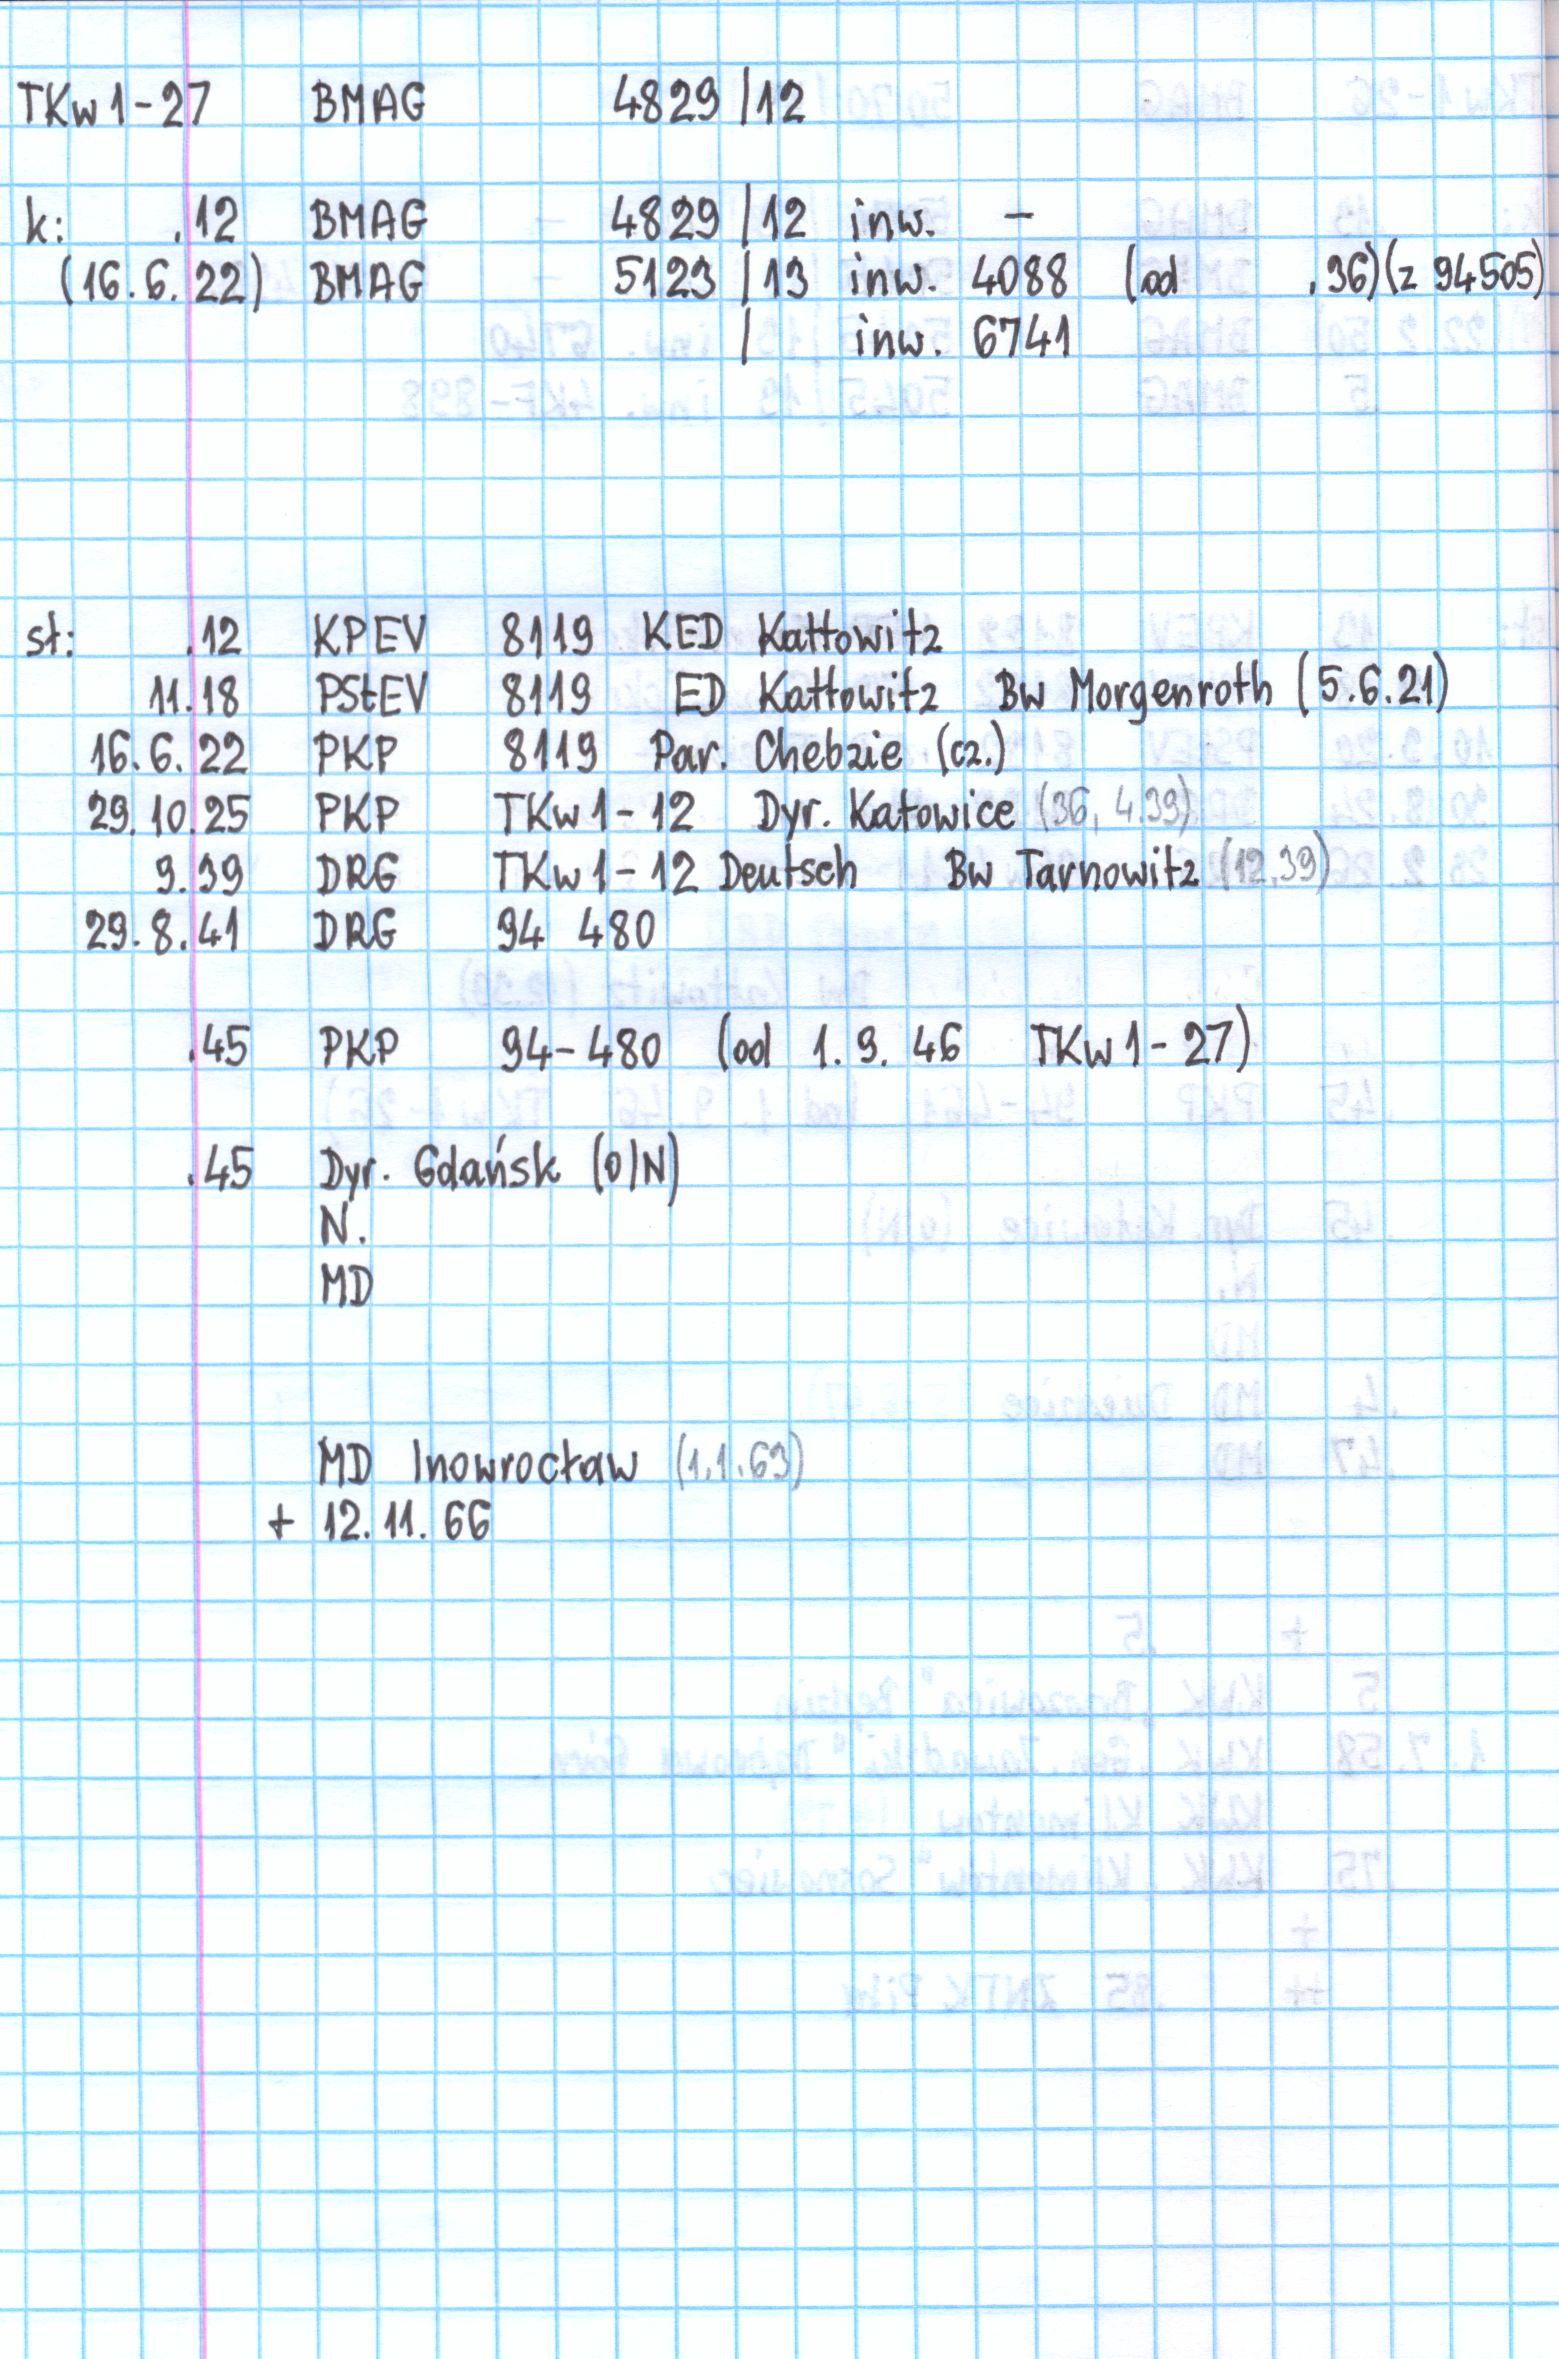 TKw1-27 BMAG 4829/12
k: .12 BMAG 4829/12 inw. -
(16.6.22) BMAG 5123/13 inw. 4088 (od .36)(z 94505)
/ inw. 6741
st: .12 KPEV 8119 KED Kattowitz
11.18 PStEV 8119 ED Kattowitz Bw Morgenroth (5.6.21)
16.6.22 PKP 8119 Par. Chebzie (cz.)
29.10.25 PKP TKw1-12 Dyr. Katowice (36, 4.39)
9.39 DRG TKw1-12 Deutsch Bw Tarnowitz (12.39)
29.8.41 DRG 94 480
.45 PKP 94-480 (od 1.9.46 TKw1-27)
.45 Dyr. Gdańsk (O/N)
N.
MD
MD Inowrocław (1.1.63)
+ 12.11.66